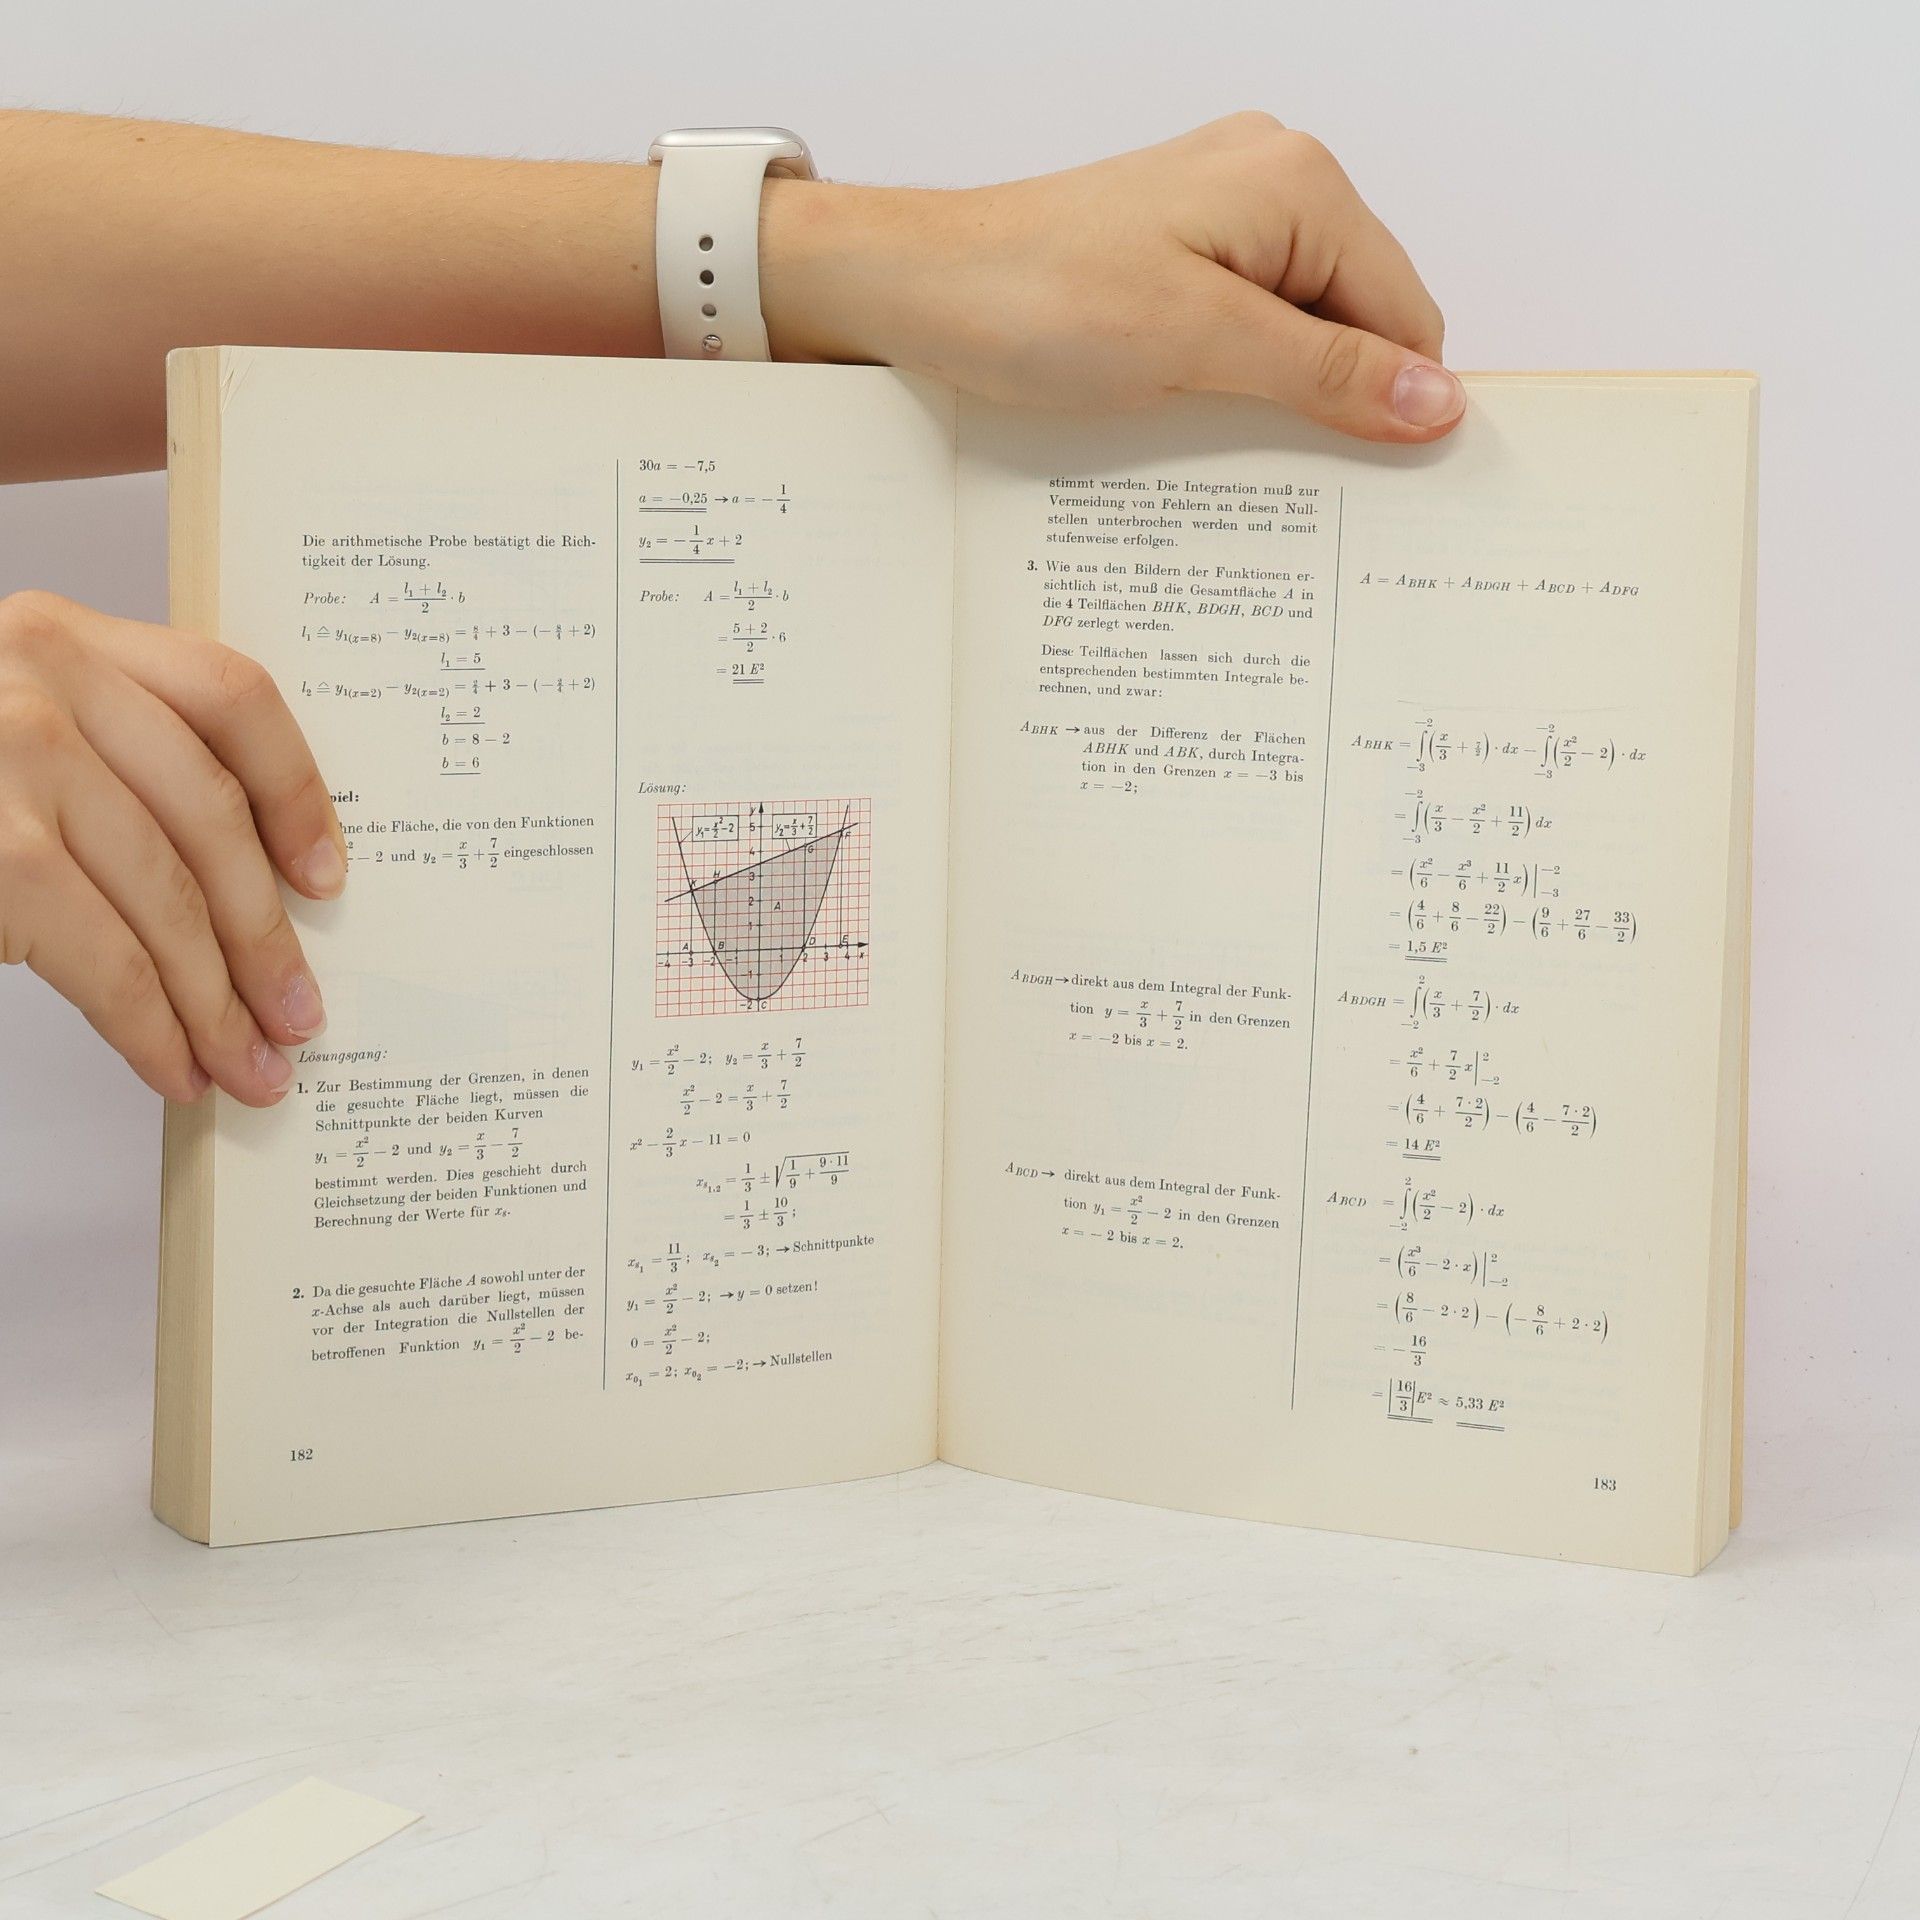 Die arithmetische Probe bestätigt die Rich-
tigkeit der Lösung.
Probe: A = (l₁ + l₂)/2 · b
l₁ ≙ y₁₍ₓ₌₈₎ − y₂₍ₓ₌₈₎ = 8/4 + 3 − (−8/4 + 2)
l₁ = 5
l₂ ≙ y₁₍ₓ₌₂₎ − y₂₍ₓ₌₂₎ = 2/4 + 3 − (−2/4 + 2)
l₂ = 2
b = 8 − 2
b = 6
piel:
hne die Fläche, die von den Funktionen
− 2 und y₂ = x/3 + 7/2 eingeschlossen
Lösungsgang:
1. Zur Bestimmung der Grenzen, in denen
die gesuchte Fläche liegt, müssen die
Schnittpunkte der beiden Kurven
y₁ = x²/2 − 2 und y₂ = x/3 − 7/2
bestimmt werden. Dies geschieht durch
Gleichsetzung der beiden Funktionen und
Berechnung der Werte für xₛ.
2. Da die gesuchte Fläche A sowohl unter der
x-Achse als auch darüber liegt, müssen
vor der Integration die Nullstellen der
betroffenen Funktion y₁ = x²/2 − 2 be-
182
30a = −7,5
a = −0,25 → a = −1/4
y₂ = −1/4 x + 2
Probe: A = (l₁ + l₂)/2 · b
= (5 + 2)/2 · 6
= 21 E²
Lösung:
y₁=x²/2−2 y₂=x/3+7/2
y 5 4 3 2 1 −1 −2
−4 −3 −2 −1 1 2 3 4 x
K H G F A A B D E C
y₁ = x²/2 − 2; y₂ = x/3 + 7/2
x²/2 − 2 = x/3 + 7/2
x² − 2/3 x − 11 = 0
xₛ₁,₂ = 1/3 ± √(1/9 + (9 · 11)/9)
= 1/3 ± 10/3;
xₛ₁ = 11/3; xₛ₂ = −3; → Schnittpunkte
y₁ = x²/2 − 2; → y = 0 setzen!
0 = x²/2 − 2;
x₀₁ = 2; x₀₂ = −2; → Nullstellen
stimmt werden. Die Integration muß zur
Vermeidung von Fehlern an diesen Null-
stellen unterbrochen werden und somit
stufenweise erfolgen.
3. Wie aus den Bildern der Funktionen er-
sichtlich ist, muß die Gesamtfläche A in
die 4 Teilflächen BHK, BDGH, BCD und
DFG zerlegt werden.
Diese Teilflächen lassen sich durch die
entsprechenden bestimmten Integrale be-
rechnen, und zwar:
A_BHK → aus der Differenz der Flächen
ABHK und ABK, durch Integra-
tion in den Grenzen x = −3 bis
x = −2;
A_BDGH → direkt aus dem Integral der Funk-
tion y = x/3 + 7/2 in den Grenzen
x = −2 bis x = 2.
A_BCD → direkt aus dem Integral der Funk-
tion y₁ = x²/2 − 2 in den Grenzen
x = −2 bis x = 2.
A = A_BHK + A_BDGH + A_BCD + A_DFG
A_BHK = ∫₋₃⁻² (x/3 + 7/2) · dx − ∫₋₃⁻² (x²/2 − 2) · dx
= ∫₋₃⁻² (x/3 − x²/2 + 11/2) dx
= (x²/6 − x³/6 + 11/2 x) |₋₃⁻²
= (4/6 + 8/6 − 22/2) − (9/6 + 27/6 − 33/2)
= 1,5 E²
A_BDGH = ∫₋₂² (x/3 + 7/2) · dx
= x²/6 + 7/2 x |₋₂²
= (4/6 + (7 · 2)/2) − (4/6 − (7 · 2)/2)
= 14 E²
A_BCD = ∫₋₂² (x²/2 − 2) · dx
= (x³/6 − 2 · x) |₋₂²
= (8/6 − 2 · 2) − (−8/6 + 2 · 2)
= −16/3
= |16/3| E² ≈ 5,33 E²
183